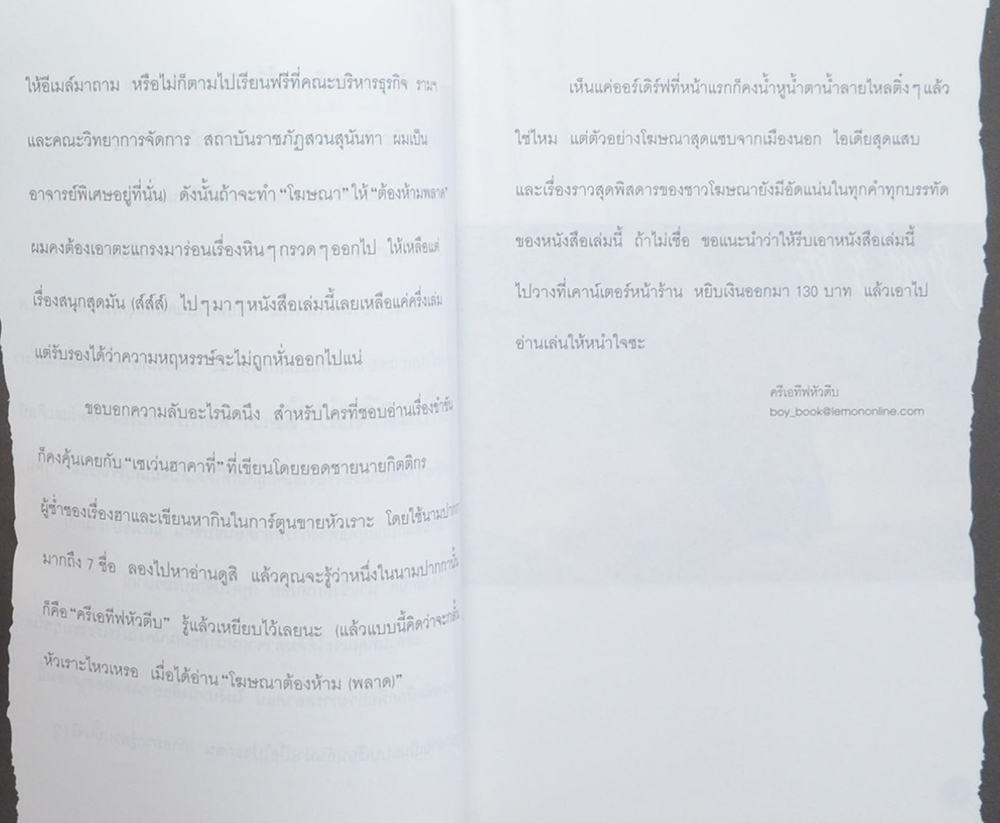 ให้อีเมล์มาถาม หรือไม่ก็ตามไปเรียนฟรีที่คณะบริหารธุรกิจ รามฯ
และคณะวิทยาการจัดการ สถาบันราชภัฏสวนสุนันทา ผมเป็น
อาจารย์พิเศษอยู่ที่นั่น) ดังนั้นถ้าจะทำ “โฆษณา” ให้ “ต้องห้ามพลาด”
ผมคงต้องเอาตะแกรงมาร่อนเรื่องหินๆ กรวดๆ ออกไป ให้เหลือแต่
เรื่องสนุกสุดมัน (ส์ส์ส์) ไปๆ มาๆ หนังสือเล่มนี้เลยเหลือแค่ครึ่งเล่ม
แต่รับรองได้ว่าความหฤหรรษ์จะไม่ถูกหั่นออกไปแน่
ขอบอกความลับอะไรนิดนึง สำหรับใครที่ชอบอ่านเรื่องขำขัน
ก็คงคุ้นเคยกับ “เซเว่นฮาคาที่” ที่เขียนโดยยอดชายนายกิตติกร
ผู้ช่ำชองเรื่องฮาและเขียนหากินในการ์ตูนขายหัวเราะ โดยใช้นามปากกา
มากถึง 7 ชื่อ ลองไปหาอ่านดูสิ แล้วคุณจะรู้ว่าหนึ่งในนามปากกานั้น
ก็คือ “ครีเอทีฟหัวตีบ” รู้แล้วเหยียบไว้เลยนะ (แล้วแบบนี้คิดว่าจะกลั้น
หัวเราะไหวเหรอ เมื่อได้อ่าน “โฆษณาต้องห้าม (พลาด)”
เห็นแค่ออร์เดิร์ฟที่หน้าแรกก็คงน้ำหูน้ำตาน้ำลายไหลติ๋งๆ แล้ว
ใช่ไหม แต่ตัวอย่างโฆษณาสุดแซบจากเมืองนอก ไอเดียสุดแสบ
และเรื่องราวสุดพิสดารของชาวโฆษณายังมีอัดแน่นในทุกคำทุกบรรทัด
ของหนังสือเล่มนี้ ถ้าไม่เชื่อ ขอแนะนำว่าให้รีบเอาหนังสือเล่มนี้
ไปวางที่เคาน์เตอร์หน้าร้าน หยิบเงินออกมา 130 บาท แล้วเอาไป
อ่านเล่นให้หนำใจซะ
ครีเอทีฟหัวตีบ
boy_book@lemononline.com